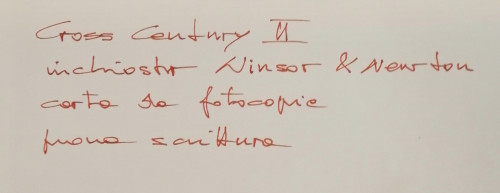 Cross Century II
inchiostr Winsor & Newton
carta da fotocopie
prova scrittura